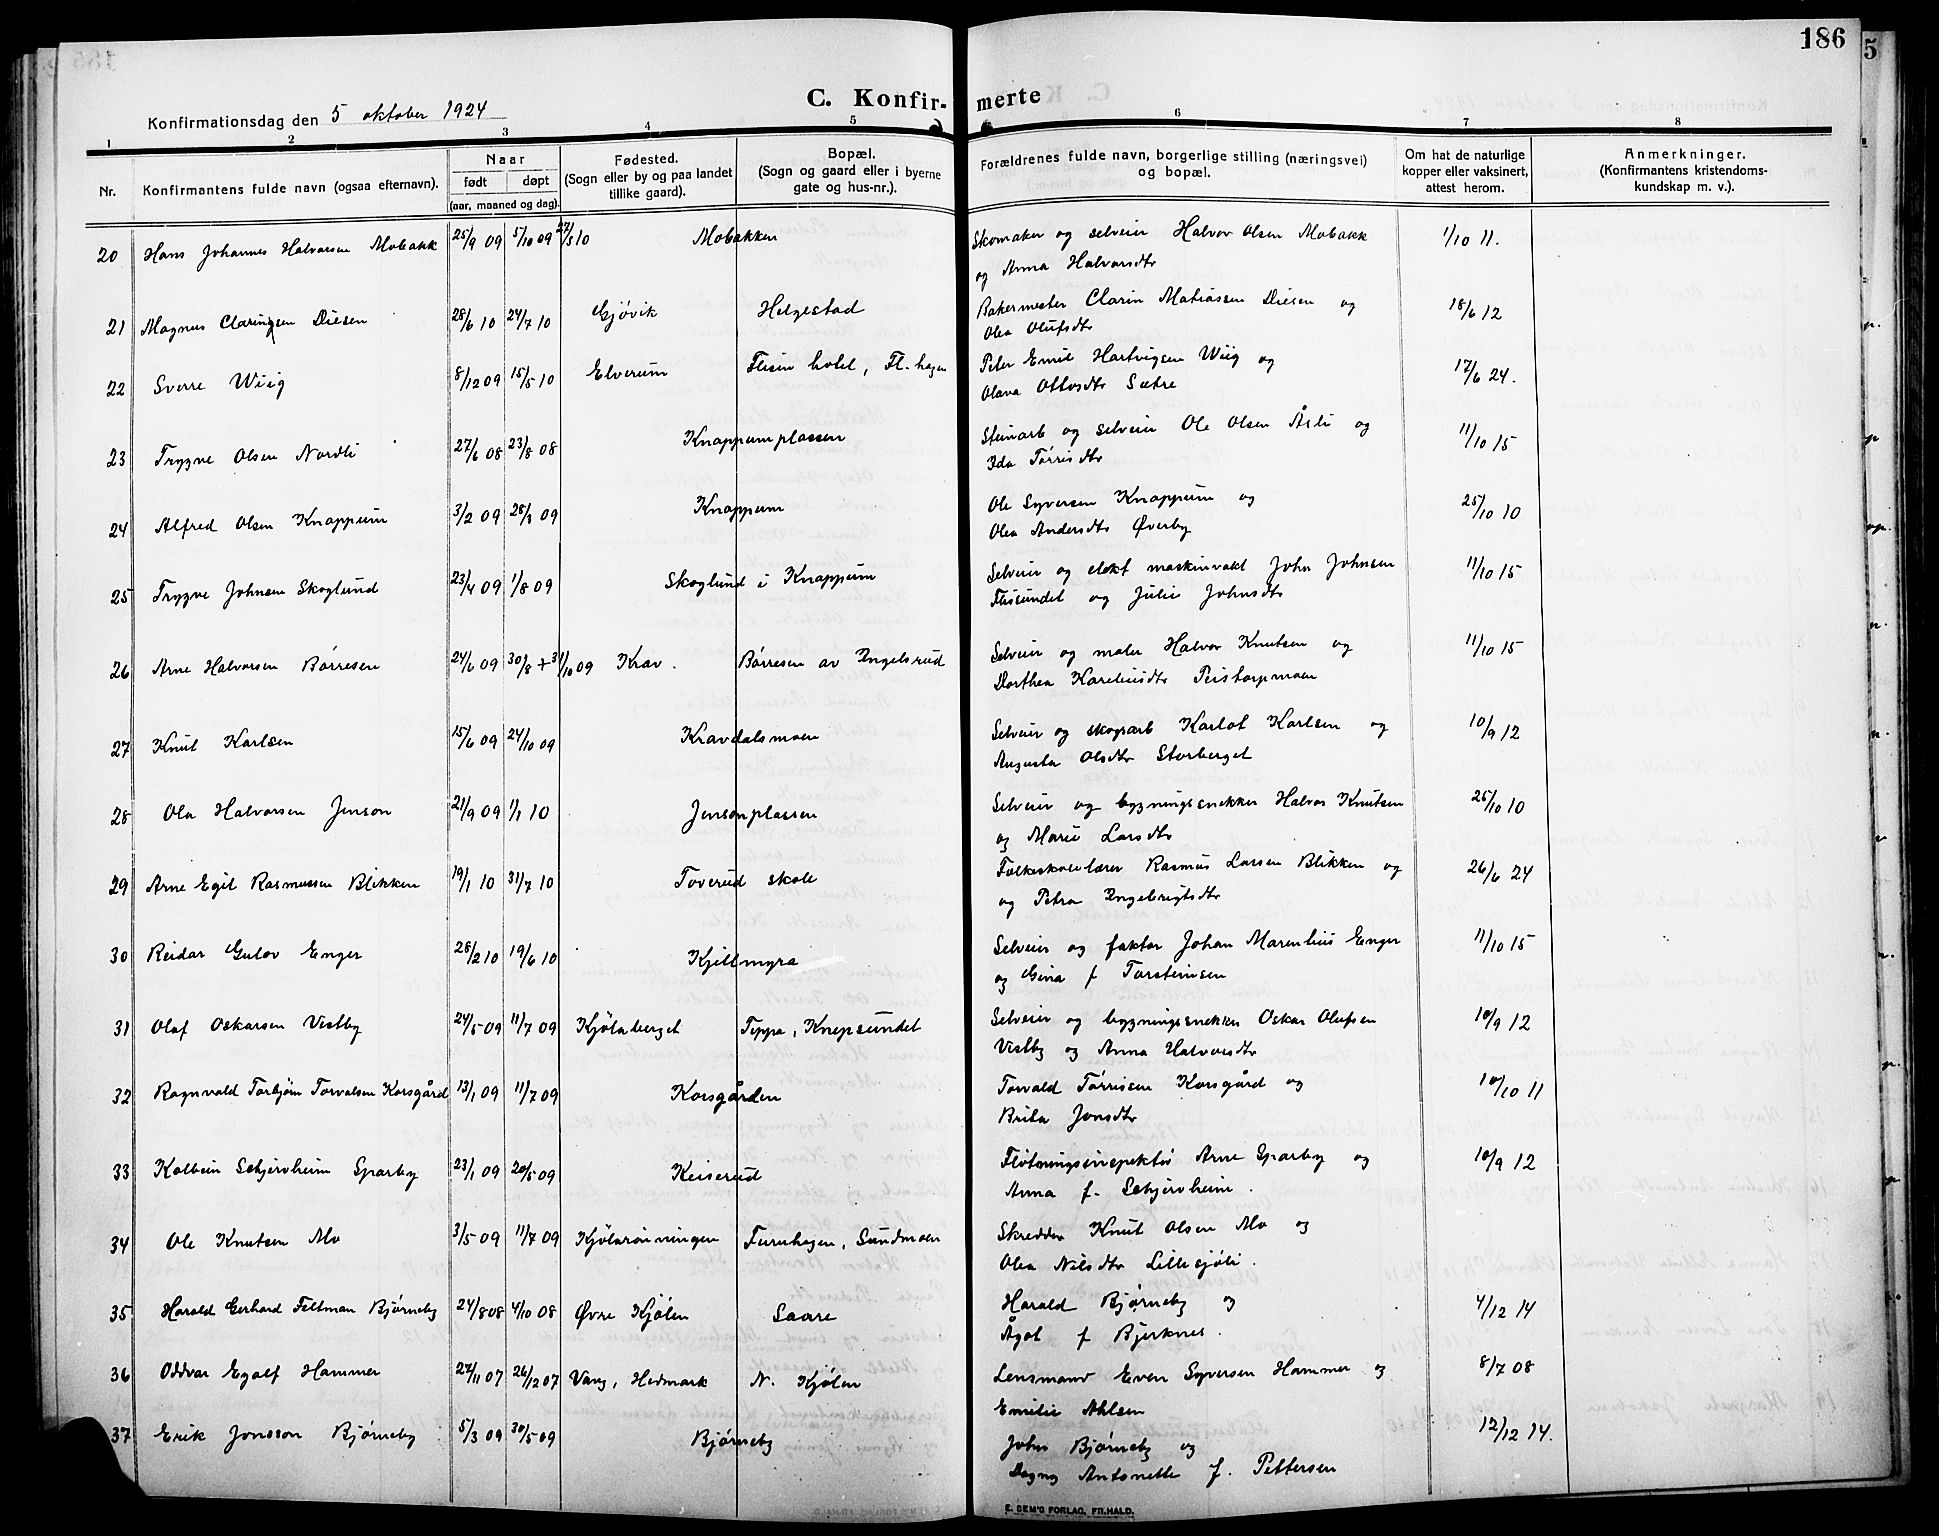 186
5
C. Konfir-
merte
Konfirmationsdag den 5 oktober 1924
1 2 3 4 5 6 7 8
Nr.
Konfirmantens fulde navn (ogsaa efternavn).
Naar
født døpt
(aar, maaned og dag).
Fødested.
(Sogn eller by og paa landet
tillike gaard).
Bopæl.
(Sogn og gaard eller i byerne
gate og hus-nr.).
Forældrenes fulde navn, borgerlige stilling (næringsvei)
og bopæl.
Om hat de naturlige
kopper eller vaksinert,
attest herom.
Anmerkninger.
(Konfirmantens kristendoms-
kundskap m. v.).
20 Hans Johannes Halvorsen Mobakk 25/9 09 5/10 09 27/3 10 Mobakken Skomaker og selveier Halvor Olsen Mobakk 1/10 11.
og Anna Halvorsdtr
21 Magnus Clarinsen Diesen 28/6 10 24/7 10 Gjøvik Helgestad Bakermester Clarin Matiassen Diesen og 18/6 12
Olea Olufsdtr
22 Sverre Wiig 8/12 09 15/5 10 Elverum Flisen hotel, Fl.hagen Peter Emil Hartvigsen Wiig og 17/6 24.
Olava Ottosdtr Sætre
23 Trygve Olsen Nordli 27/6 08 23/8 08 Knappumplassen Steinarb og selveier Ole Olsen Åsli og 11/10 15
Ida Tørrisdtr
24 Alfred Olsen Knappum 3/2 09 28/3 09 Knappum Ole Syversen Knappum og 25/10 10
Olea Andersdtr Øverby
25 Trygve Johnsen Skoglund 23/4 09 1/8 09 Skoglund i Knappum Selveier og elekt maskinvakt John Johnsen 11/10 15
Flisundet og Julie Johnsdtr
26 Arne Halvorsen Børresen 24/6 09 30/8 + 31/10 09 Krav. Børresen av Engelsrud Selveier og maler Halvor Knutsen og 11/10 15
Dorthea Kareliusdtr Peistorpmoen
27 Knut Karlsen 15/6 09 24/10 09 Kravdalsmoen Selveier og skogsarb Karlot Karlsen og 10/9 12
Augusta Olsdtr Storberget
28 Ola Halvorsen Jenson 21/9 09 1/1 10 Jensonplassen Selveier og bygningssnekker Halvor Knutsen 25/10 10
og Marie Larsdtr
29 Arne Egil Rasmussen Blikken 19/1 10 31/7 10 Toverud skole Folkeskolelærer Rasmus Larsen Blikken og 26/6 24
og Petra Engebrigtsdtr
30 Reidar Gulov Enger 28/2 10 19/6 10 Kjellmyra Selveier og faktor Johan Marenlius Enger 11/10 15
og Gina f Torsteinsen
31 Olaf Oskarsen Vestby 24/5 09 11/7 09 Kjølaberget Teppa, Knepsundet Selveier og bygningssnekker Oskar Olufsen 10/9 12
Vestby og Anna Halvorsdtr
32 Ragnvald Torbjørn Torvalsen Korsgård 13/1 09 11/7 09 Korsgården Torvald Tørrisen Korsgård og 10/10 11
Brita Jonsdtr
33 Kolbein Schjervheim Sparby 23/1 09 20/5 09 Keiserud Fløtningsinspektør Arne Sparby og 10/9 12
Anna f. Schjervheim.
34 Ole Knutsen Mo 3/5 09 11/7 09 Kjølarønningen Furuhagen, Sundmoen Skredder Knut Olsen Mo og
Olea Nilsdtr Lillesjøli.
35 Harald Gerhard Feltman Bjørneby 24/8 08 4/10 08 Øvre Kjølen Saare Harald Bjørneby og 4/12 14
Ågot f Bjerknes.
36 Oddvar Egolf Hammer 27/11 07 26/12 07 Vang, Hedmark N. Kjølen Lensmand Even Syversen Hammer og 8/7 08
Emilie Ahlsen
37 Erik Jonsson Bjørneby 5/3 09 30/5 09 Bjørneby John Bjørneby og 12/12 14.
Dagny Antonette f. Pettersen
E. SEM'S FORLAG, FR.HALD.